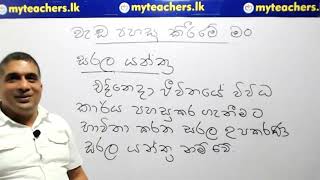 myteachers.lk myteachers.lk
වැඩ පහසු කිරීමේ මං
සරල යන්ත්‍ර
එදිනෙදා ජීවිතයේ විවිධ
කාර්ය පහසුකර ගැනීමට
භාවිතා කරන සරල උපකරණ
සරල යන්ත්‍ර නම් වේ.